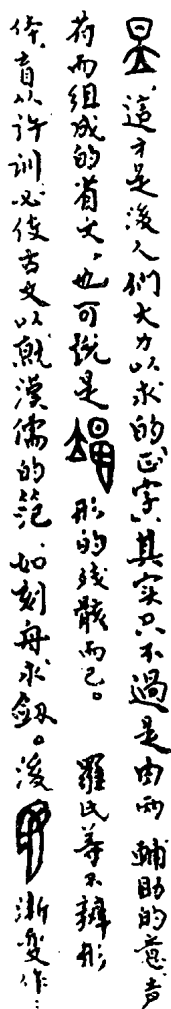 這才是後人們大力以求的正字，其实只不過是由两輔助的意、声
符而組成的省文，也可說是 形的殘骸而已。 羅氏等不辨形
体，盲从許訓，必使古文以就漢儒的范，如刻舟求劔。後 漸变作：